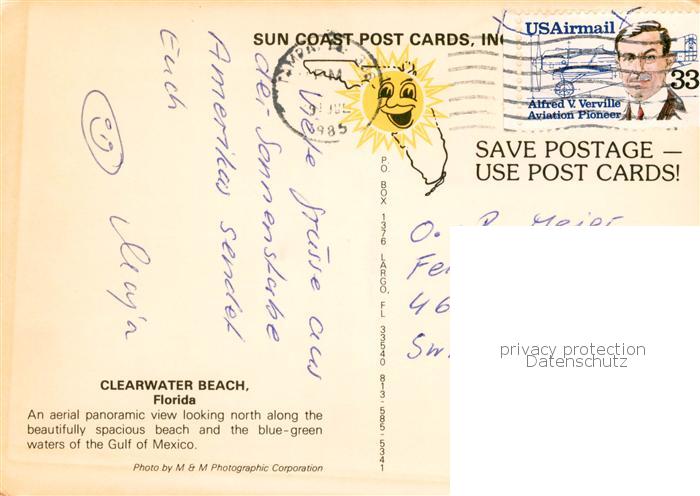 SUN COAST POST CARDS, INC
USAirmail
33
Alfred V. Verville
Aviation Pioneer
TAMPA, FL
1985
SAVE POSTAGE —
USE POST CARDS!
Viele Grüsse aus
der Sonnenstube
Amerikas sendet
Euch
P.O. BOX 1376 LARGO, FL 33540 813-585-5341
O.
Fe
46
Sw
privacy protection
Datenschutz
CLEARWATER BEACH,
Florida
An aerial panoramic view looking north along the
beautifully spacious beach and the blue-green
waters of the Gulf of Mexico.
Photo by M & M Photographic Corporation